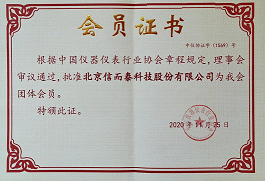 会员证书
中仪协证字（1569）号
根据中国仪器仪表行业协会章程规定，理事会
审议通过，批准北京信而泰科技股份有限公司为我会
团体会员。
特颁此证。
2020年 月25日